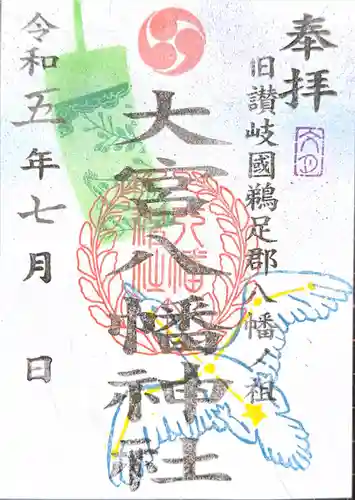 奉拝
旧讃岐國鵜足郡八幡乃祖
大宮八幡神社
令和五年七月　日